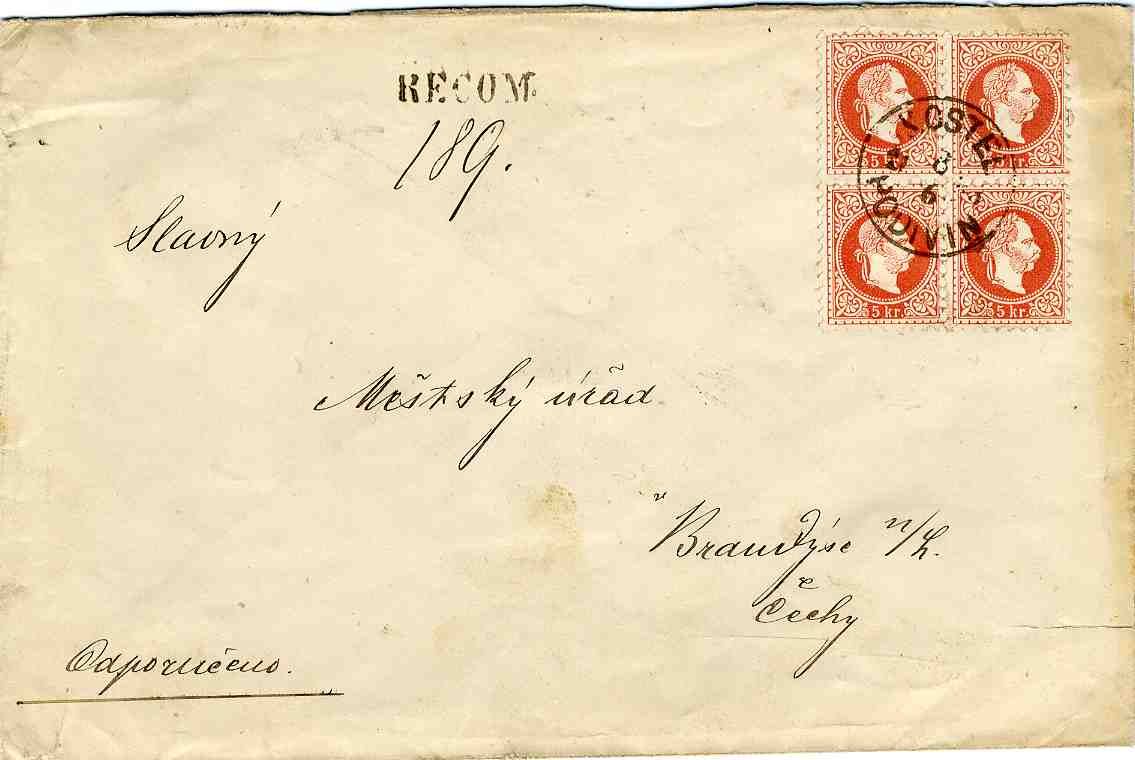 RECOM.
189.
5 kr.
5 kr.
KOSTEL
8
6
HODIVIN
5 kr.
5 kr.
Slavný
Městský úřad
v
Brandýse n/L.
Čechy
Odporučeno.